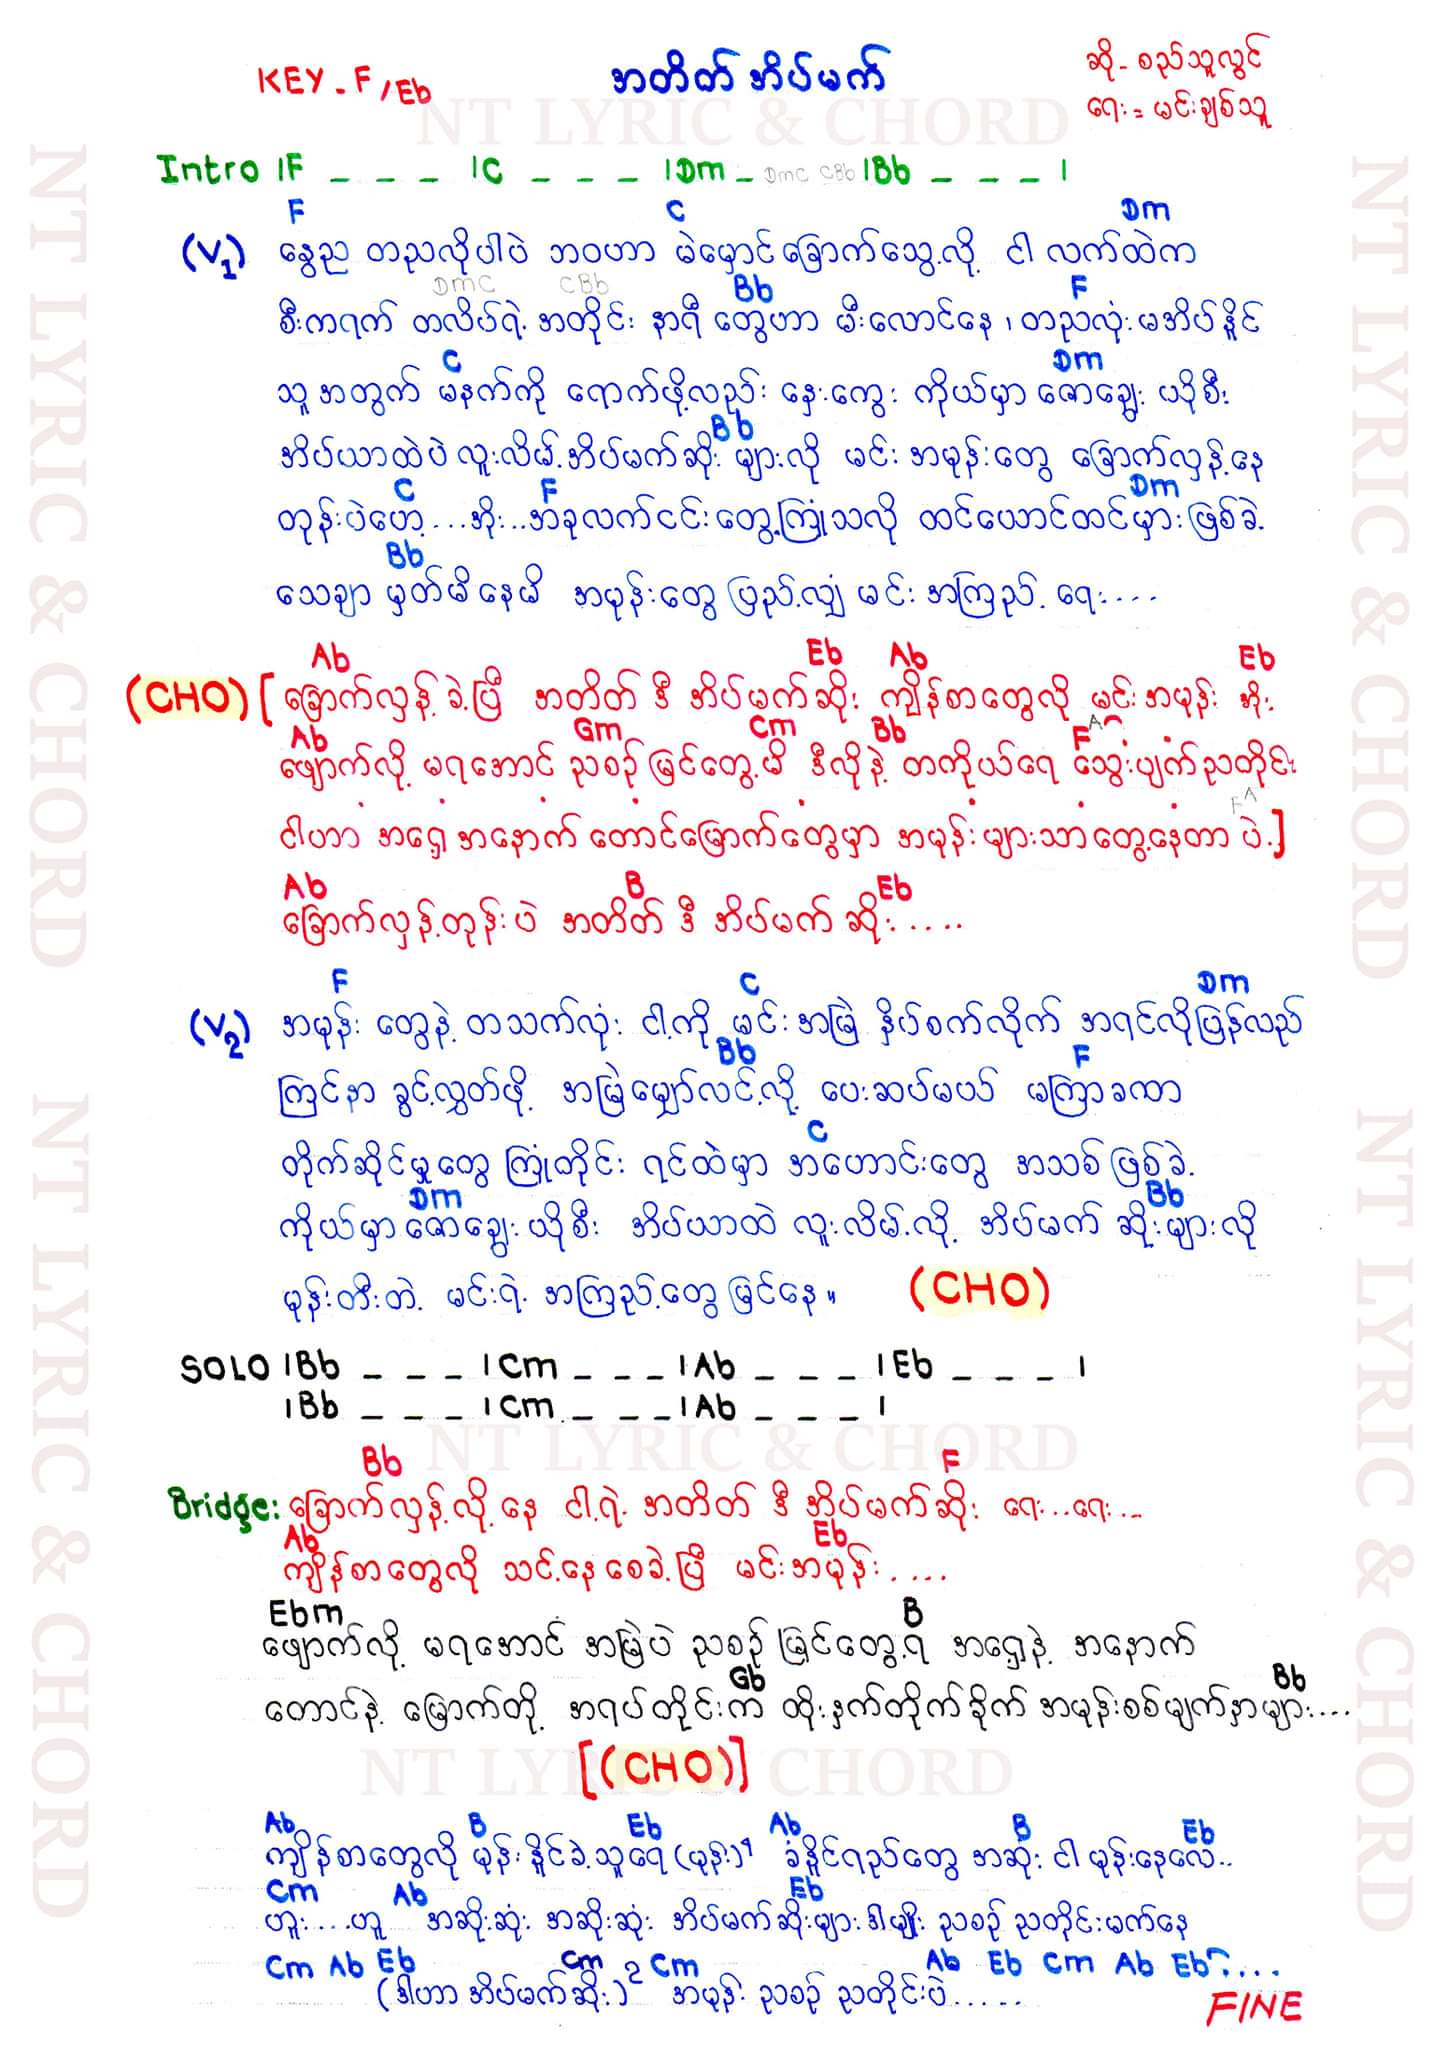 KEY - F/Eb
အတိတ်အိပ်မက်
ဆို - စည်သူလွင်
ရေး = မင်းချစ်သူ
NT LYRIC & CHORD
Intro |F _ _ _ |C _ _ _ |Dm _ DmC CBb |Bb _ _ _ |
F C Dm
(V1) နွေည တညလိုပါပဲ ဘဝဟာ မဲမှောင်ခြောက်သွေ့လို့ ငါ လက်ထဲက
DmC CBb Bb F
စီးကရက် တလိပ်ရဲ့ အတိုင်း နာရီ တွေဟာ မီးလောင်နေ ၊ တညလုံး မအိပ်နိူင်
C Dm
သူ အတွက် မနက်ကို ရောက်ဖို့လည်း နှေးကွေး ကိုယ်မှာ ဇောချွေး ယိုစီး
Bb
အိပ်ယာထဲပဲ လူးလိမ့် အိပ်မက်ဆိုးများလို မင်း အမုန်းတွေ ခြောက်လှန့်နေ
C F Dm
တုန်းပဲဟေ့...အိုး..အခုလက်ငင်းတွေ့ကြုံသလို ထင်ယောင်ထင်မှားဖြစ်ခဲ့
Bb
သေချာ မှတ်မိနေမိ အမုန်းတွေ ပြည့်လျှံ မင်း အကြည့် ရေး....
Ab Eb Ab Eb
(CHO) [ ခြောက်လှန့်ခဲ့ပြီ အတိတ် ဒီ အိပ်မက်ဆိုး ကျိန်စာတွေလို မင်းအမုန်း အိုး
Ab Gm Cm Bb F A
ဖျောက်လို့ မရအောင် ညစဉ်မြင်တွေ့မိ ဒီလိုနဲ့ တကိုယ်ရေ သွေးပျက်ညတိုင်း
F A
ငါဟာ အရှေ့ အနောက် တောင်မြောက်တွေမှာ အမုန်းများသာတွေ့နေတာ ပဲ.]
Ab B Eb
ခြောက်လှန့်တုန်းပဲ အတိတ် ဒီ အိပ်မက် ဆိုး....
F C Dm
(V2) အမုန်း တွေနဲ့ တသက်လုံး ငါ့ကို မင်းအမြဲ နှိပ်စက်လိုက် အရင်လိုပြန်လည်
Bb F
ကြင်နာ ခွင့်လွှတ်ဖို့ အမြဲမျှော်လင့်လို့ ပေးဆပ်မယ် မကြာခဏာ
C
တိုက်ဆိုင်မှုတွေ ကြုံတိုင်း ရင်ထဲမှာ အဟောင်းတွေ အသစ်ဖြစ်ခဲ့
Dm Bb
ကိုယ်မှာဇောချွေးယိုစီး အိပ်ယာထဲ လူးလိမ့်လို့ အိပ်မက် ဆိုးများလို
မုန်းတီးတဲ့ မင်းရဲ့ အကြည့်တွေမြင်နေ။ (CHO)
SOLO |Bb _ _ _ |Cm _ _ _ |Ab _ _ _ |Eb _ _ _ |
|Bb _ _ _ |Cm _ _ _ |Ab _ _ _ |
NT LYRIC & CHORD
Bb F
Bridge: ခြောက်လှန့်လို့နေ ငါ့ရဲ့ အတိတ် ဒီ အိပ်မက်ဆိုး ရေး...ရေး...
Ab Eb
ကျိန်စာတွေလို သင့်နေစေခဲ့ပြီ မင်းအမုန်း.....
Ebm B
ဖျောက်လို့ မရအောင် အမြဲပဲ ညစဉ်မြင်တွေ့ရ အရှေ့နဲ့ အနောက်
Gb Bb
တောင်နဲ့ မြောက်တို့ အရပ်တိုင်းက ထိုးနှက်တိုက်ခိုက် အမုန်းစစ်မျက်နှာများ....
[(CHO)]
NT LYRIC & CHORD
Ab B Eb Ab B Eb
ကျိန်စာတွေလို မုန်းနိူင်ခဲ့သူရေ (မုန်း)4 ခံနိူင်ရည်တွေ အဆုံး ငါ မုန်းနေလေ..
Cm Ab Eb
ဟူး....ဟူ အဆိုးဆုံး အဆိုးဆုံး အိပ်မက်ဆိုးများ ဒါမျိုး ညစဉ် ညတိုင်းမက်နေ
Cm Ab Eb Cm Cm Ab Eb Cm Ab Eb....
(ဒါဟာ အိပ်မက်ဆိုး)2 အမုန်း ညစဉ် ညတိုင်းပဲ......
FINE
NT LYRIC & CHORD
NT LYRIC & CHORD
NT LYRIC & CHORD
NT LYRIC & CHORD